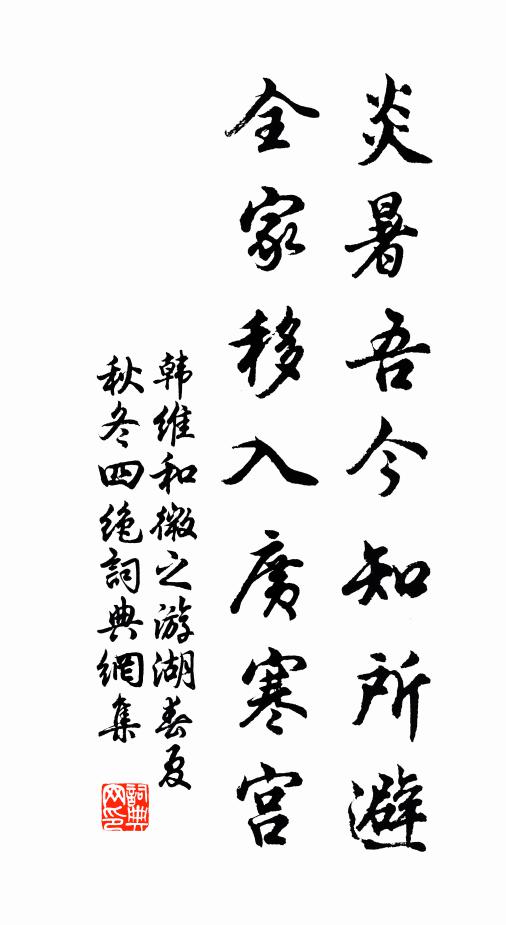 炎暑吾今知所避
全家移入廣寒宫
韩維和微之游湖春夏
秋冬四绝詞典網集
詞典网印